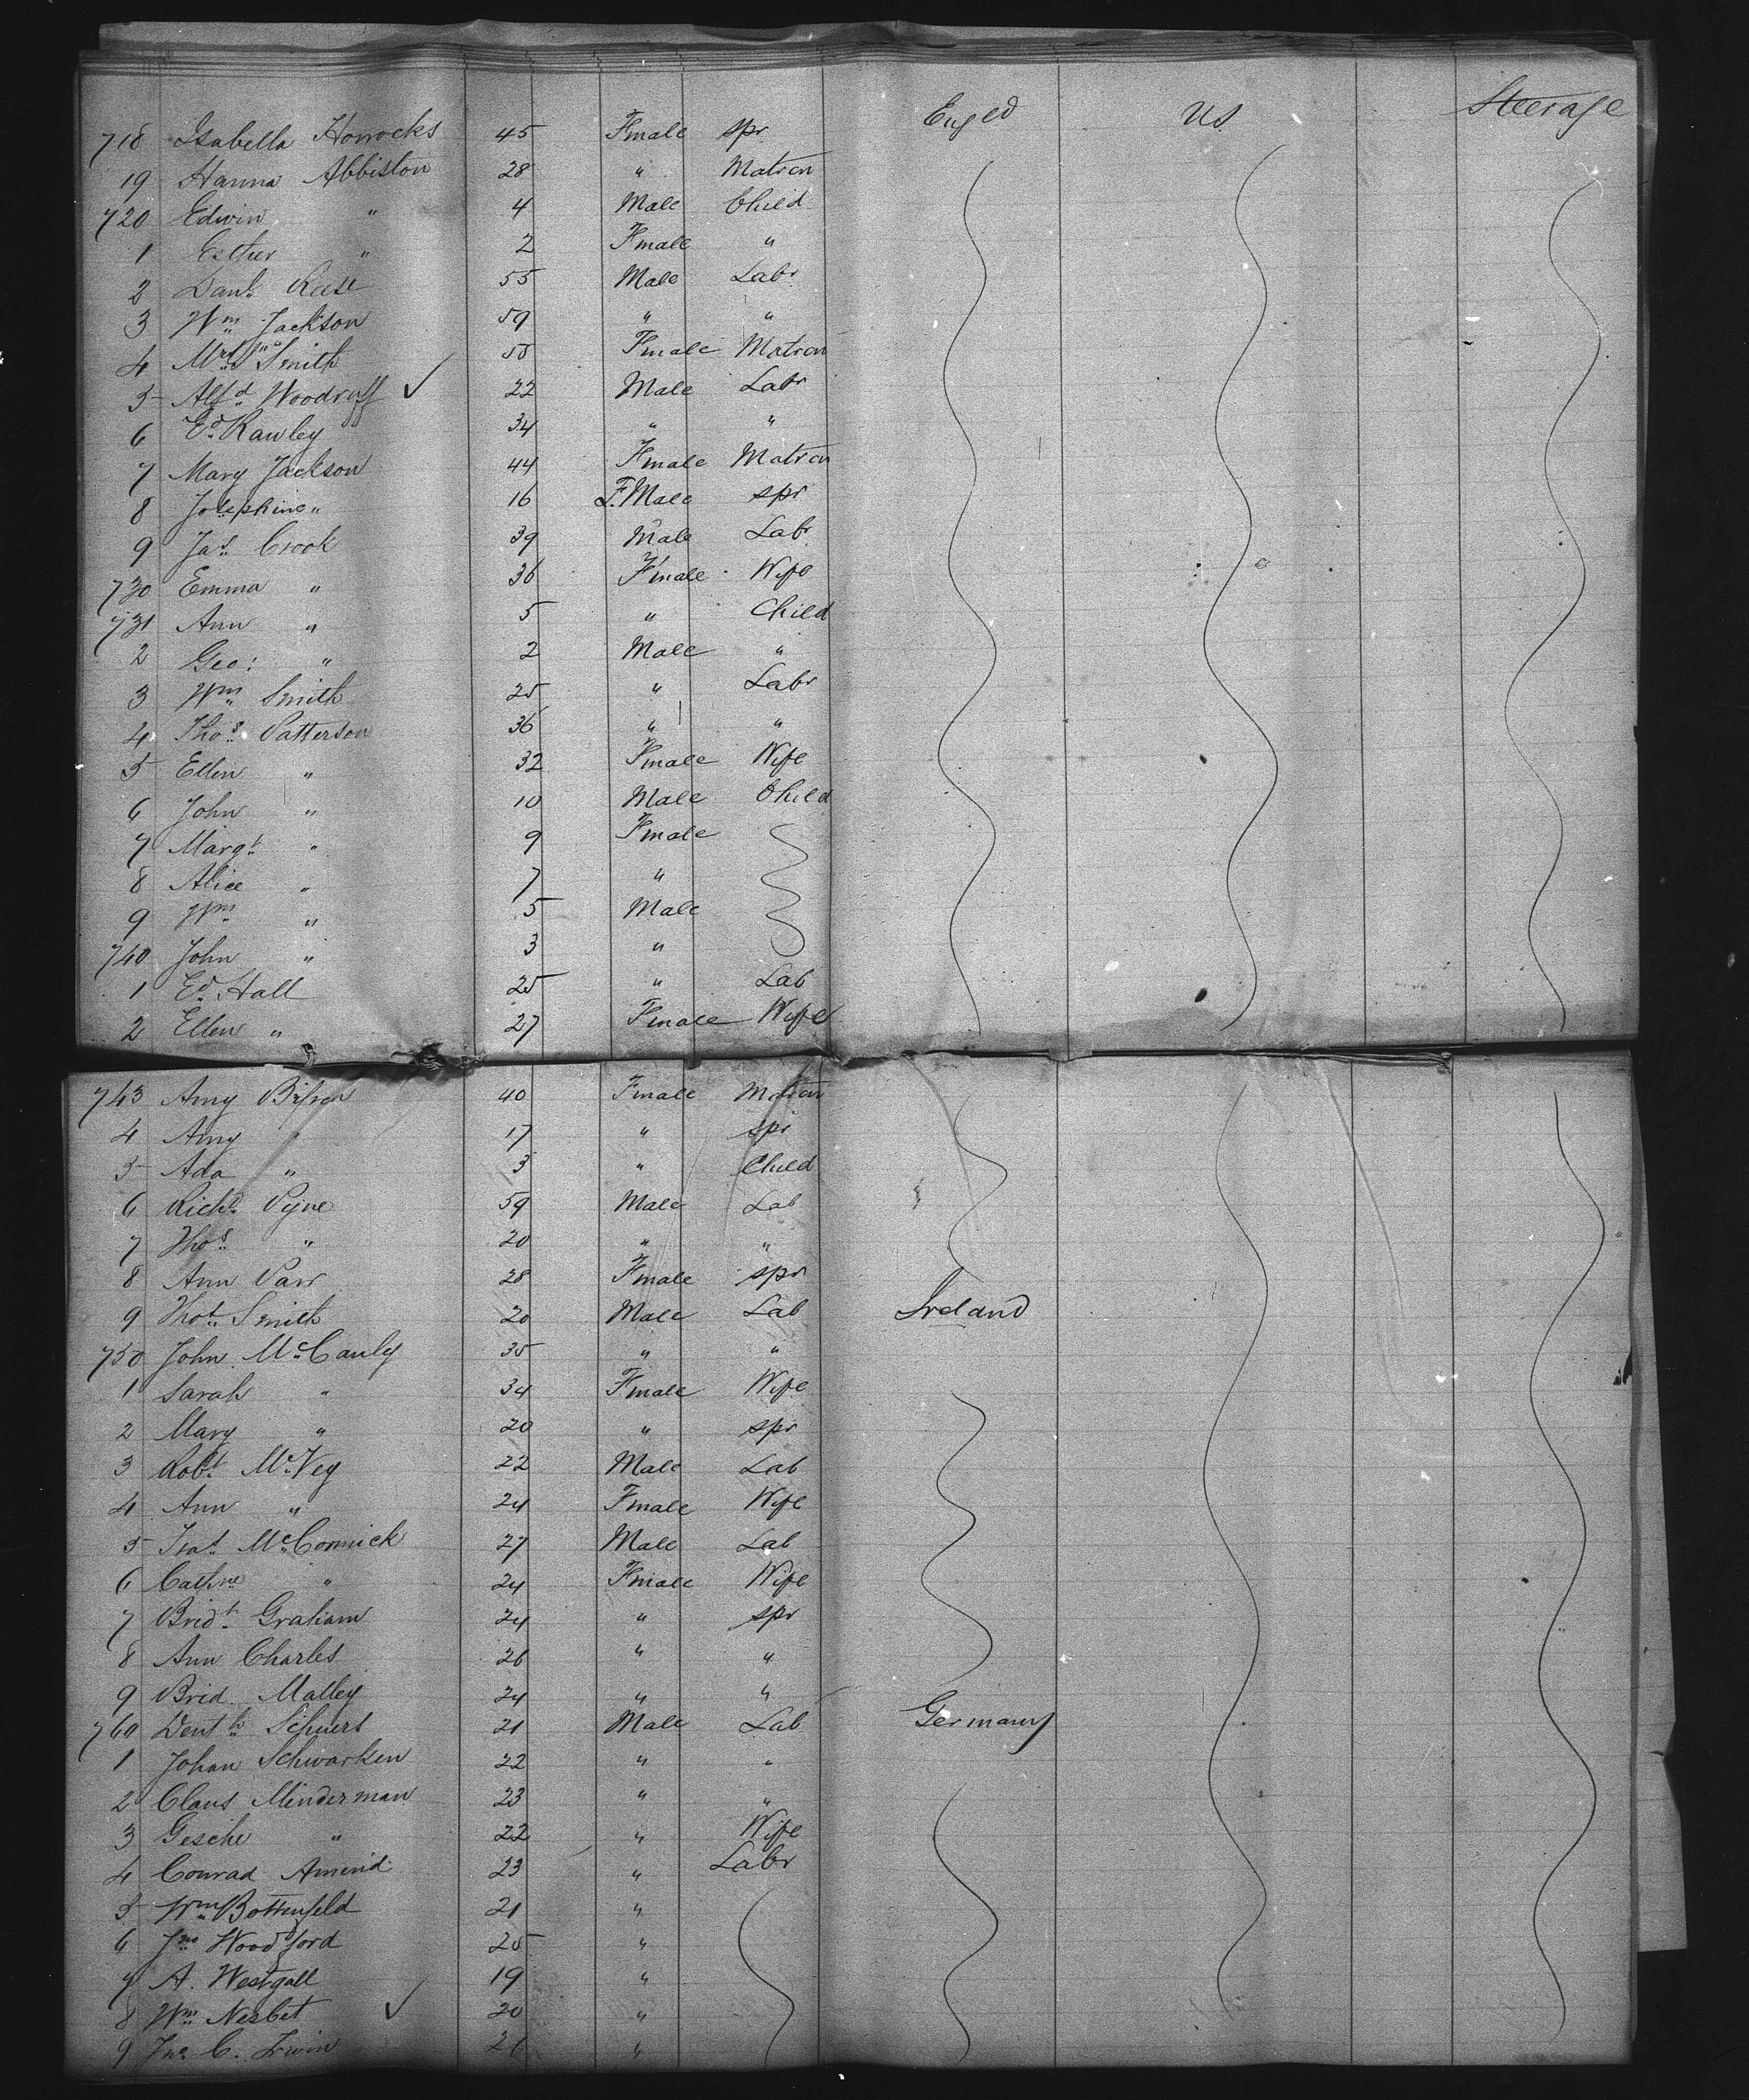 718 Isabella Horrocks 45 Fmale Spr Engld US Steerage
19 Hanna Abbiston 28 " Matron
720 Edwin " 4 Male Child
1 Esther " 2 Fmale "
2 Danl Reese 55 Male Labr
3 Wm Jackson 59 " "
4 Mrs Smith Fmale Matron
5 Alfd Woodruff ✓ 22 Male Labr
6 Ed Rawley 34 " "
7 Mary Jackson 44 Fmale Matron
8 Josephine " 16 F.Male spr
9 Jas Crook 39 Male Labr
730 Emma " 36 Fmale Wife
731 Ann " 5 " Child
2 Geo: " 2 Male "
3 Wm Smith 25 " Labr
4 Thos Patterson 36 " "
5 Ellen " 32 Fmale Wife
6 John " 10 Male Child
7 Margt " 9 Fmale
8 Alice " 7 "
9 Wm " 5 Male
740 John " 3 "
1 Ed Hall 25 " Lab
2 Ellen " 27 Fmale Wife
743 Amy 40 Fmale Matron
4 Amy " 17 " spr
5 Ada " 3 " Child
6 Richd Pyne 59 Male Lab
7 Thos " 20 " "
8 Ann Parr 28 Fmale spr
9 Thos Smith 20 Male Lab Ireland
750 John McCauly 35 " "
1 Sarah " 34 Fmale Wife
2 Mary " 20 " spr
3 Robt McVey 22 Male Lab
4 Ann " 24 Fmale Wife
5 McCormick 27 Male Lab
6 Cathne " 24 Fmale Wife
7 Bridt Graham 24 " spr
8 Ann Charles 26 " "
9 Brid Malley 24 " "
760 Schuers 21 Male Lab Germany
1 Johan Schwarken 22 " "
2 Claus Minderman 23 " "
3 Gesche " 22 " Wife
4 Conrad Amend 23 " Labr
5 Wm Bottenfeld 21 "
6 Jno Woodford 25 "
7 A. Westgall 19 "
8 Wm Nesbet ✓ 20 "
9 Jno C. Irwin "